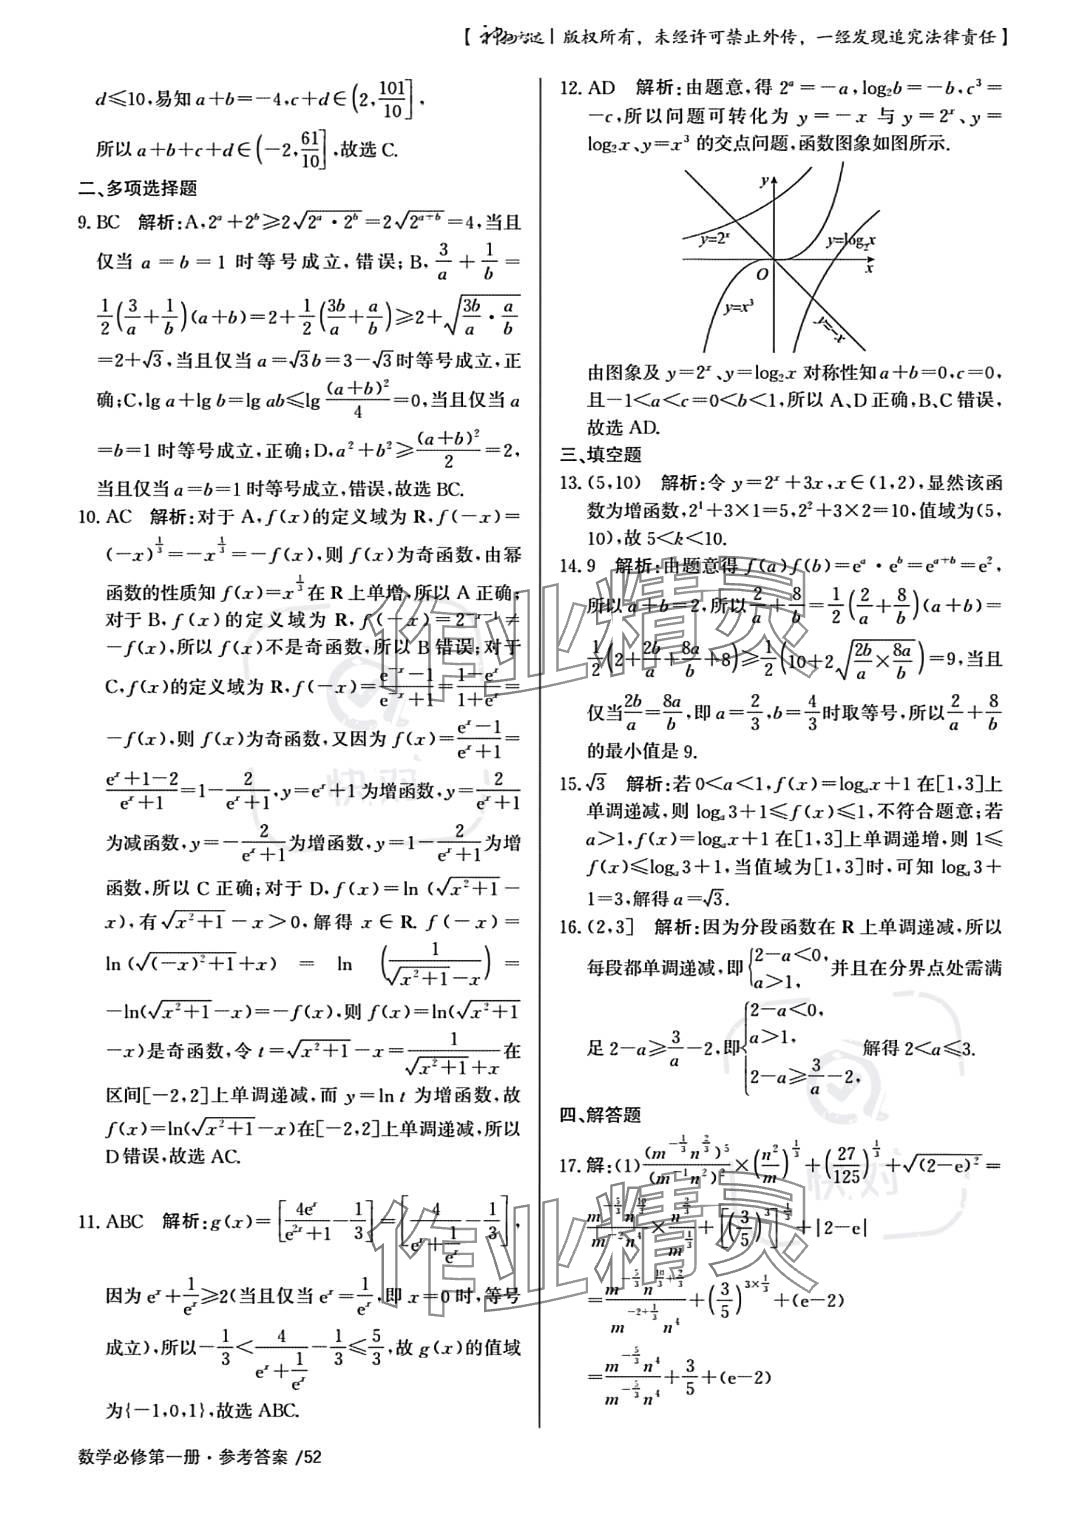 【 神 | 版权所有，未经许可禁止外传，一经发现追究法律责任】
d≤10,易知 a+b=-4,c+d∈(2,101/10],
所以 a+b+c+d∈(-2,61/10],故选C.
二、多项选择题
9. BC 解析:A,2^a+2^b≥2√(2^a·2^b)=2√(2^(a+b))=4,当且
仅当 a=b=1 时等号成立,错误;B,3/a+1/b=
1/2(3/a+1/b)(a+b)=2+1/2(3b/a+a/b)≥2+√(3b/a·a/b)
=2+√3,当且仅当 a=√3b=3-√3时等号成立,正
确;C,lg a+lg b=lg ab≤lg (a+b)²/4=0,当且仅当 a
=b=1 时等号成立,正确;D,a²+b²≥(a+b)²/2=2,
当且仅当 a=b=1 时等号成立,错误,故选 BC.
10. AC 解析:对于 A,f(x)的定义域为 R,f(-x)=
(-x)^(1/3)=-x^(1/3)=-f(x),则 f(x)为奇函数,由幂
函数的性质知 f(x)=x^(1/3)在 R 上单增,所以 A 正确;
对于 B,f(x)的定义域为 R,f(-x)=2^(-x-1)≠
-f(x),所以 f(x)不是奇函数,所以 B 错误;对于
C,f(x)的定义域为 R,f(-x)=(e^(-x)-1)/(e^(-x)+1)=(1-e^x)/(1+e^x)=
-f(x),则 f(x)为奇函数,又因为 f(x)=(e^x-1)/(e^x+1)=
(e^x+1-2)/(e^x+1)=1-2/(e^x+1),y=e^x+1为增函数,y=2/(e^x+1)
为减函数,y=-2/(e^x+1)为增函数,y=1-2/(e^x+1)为增
函数,所以 C 正确;对于 D,f(x)=ln(√(x²+1)-
x),有√(x²+1)-x>0,解得 x∈R. f(-x)=
ln(√((-x)²+1)+x) = ln (1/(√(x²+1)-x)) =
-ln(√(x²+1)-x)=-f(x),则 f(x)=ln(√(x²+1)
-x)是奇函数,令 t=√(x²+1)-x=1/(√(x²+1)+x)在
区间[-2,2]上单调递减,而 y=ln t 为增函数,故
f(x)=ln(√(x²+1)-x)在[-2,2]上单调递减,所以
D错误,故选 AC.
11. ABC 解析:g(x)=[4e^x/(e^(2x)+1)-1/3]=[4/(e^x+1/e^x)-1/3],
因为 e^x+1/e^x≥2(当且仅当 e^x=1/e^x,即 x=0时,等号
成立),所以-1/3<4/(e^x+1/e^x)-1/3≤5/3,故 g(x)的值域
为{-1,0,1},故选 ABC.
12. AD 解析:由题意,得 2^a=-a,log₂b=-b,c³=
-c,所以问题可转化为 y=-x 与 y=2^x、y=
log₂x、y=x³ 的交点问题,函数图象如图所示.
y
y=2^x
y=log₂x
O
x
y=x³
y=-x
由图象及 y=2^x、y=log₂x 对称性知 a+b=0,c=0,
且-1<a<c=0<b<1,所以 A、D 正确,B、C 错误,
故选 AD.
三、填空题
13. (5,10) 解析:令 y=2^x+3x,x∈(1,2),显然该函
数为增函数,2¹+3×1=5,2²+3×2=10,值域为(5,
10),故 5<k<10.
14. 9 解析:由题意得 f(a)f(b)=e^a·e^b=e^(a+b)=e²,
所以 a+b=2,所以2/a+8/b=1/2(2/a+8/b)(a+b)=
1/2(2+2b/a+8a/b+8)≥1/2(10+2√(2b/a×8a/b))=9,当且
仅当2b/a=8a/b,即 a=2/3,b=4/3时取等号,所以2/a+8/b
的最小值是 9.
15. √3 解析:若 0<a<1,f(x)=logₐx+1 在[1,3]上
单调递减,则 logₐ3+1≤f(x)≤1,不符合题意;若
a>1,f(x)=logₐx+1 在[1,3]上单调递增,则 1≤
f(x)≤logₐ3+1,当值域为[1,3]时,可知 logₐ3+
1=3,解得 a=√3.
16. (2,3] 解析:因为分段函数在 R 上单调递减,所以
每段都单调递减,即{2-a<0, a>1, 并且在分界点处需满
足 2-a≥3/a-2,即{2-a<0, a>1, 2-a≥3/a-2, 解得 2<a≤3.
四、解答题
17. 解:(1)(m^(-1/3)n^(2/3))⁵/(m^(-1)n²)²×(n²/m)^(1/3)+(27/125)^(1/3)+√((2-e)²)=
m^(-5/3)n^(10/3)/(m^(-2)n⁴)×n^(2/3)/m^(1/3)+[(3/5)³]^(1/3)+|2-e|
=m^(-5/3)n^(10/3+2/3)/(m^(-2+1/3)n⁴)+(3/5)^(3×1/3)+(e-2)
=m^(-5/3)n⁴/(m^(-5/3)n⁴)+3/5+(e-2)
数学必修第一册·参考答案 /52
作业精灵
作业精灵
快对
快对